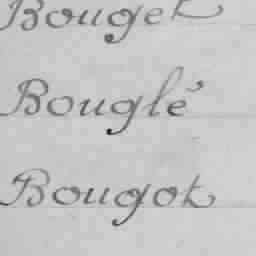 Bouget
Bouglé
Bougot